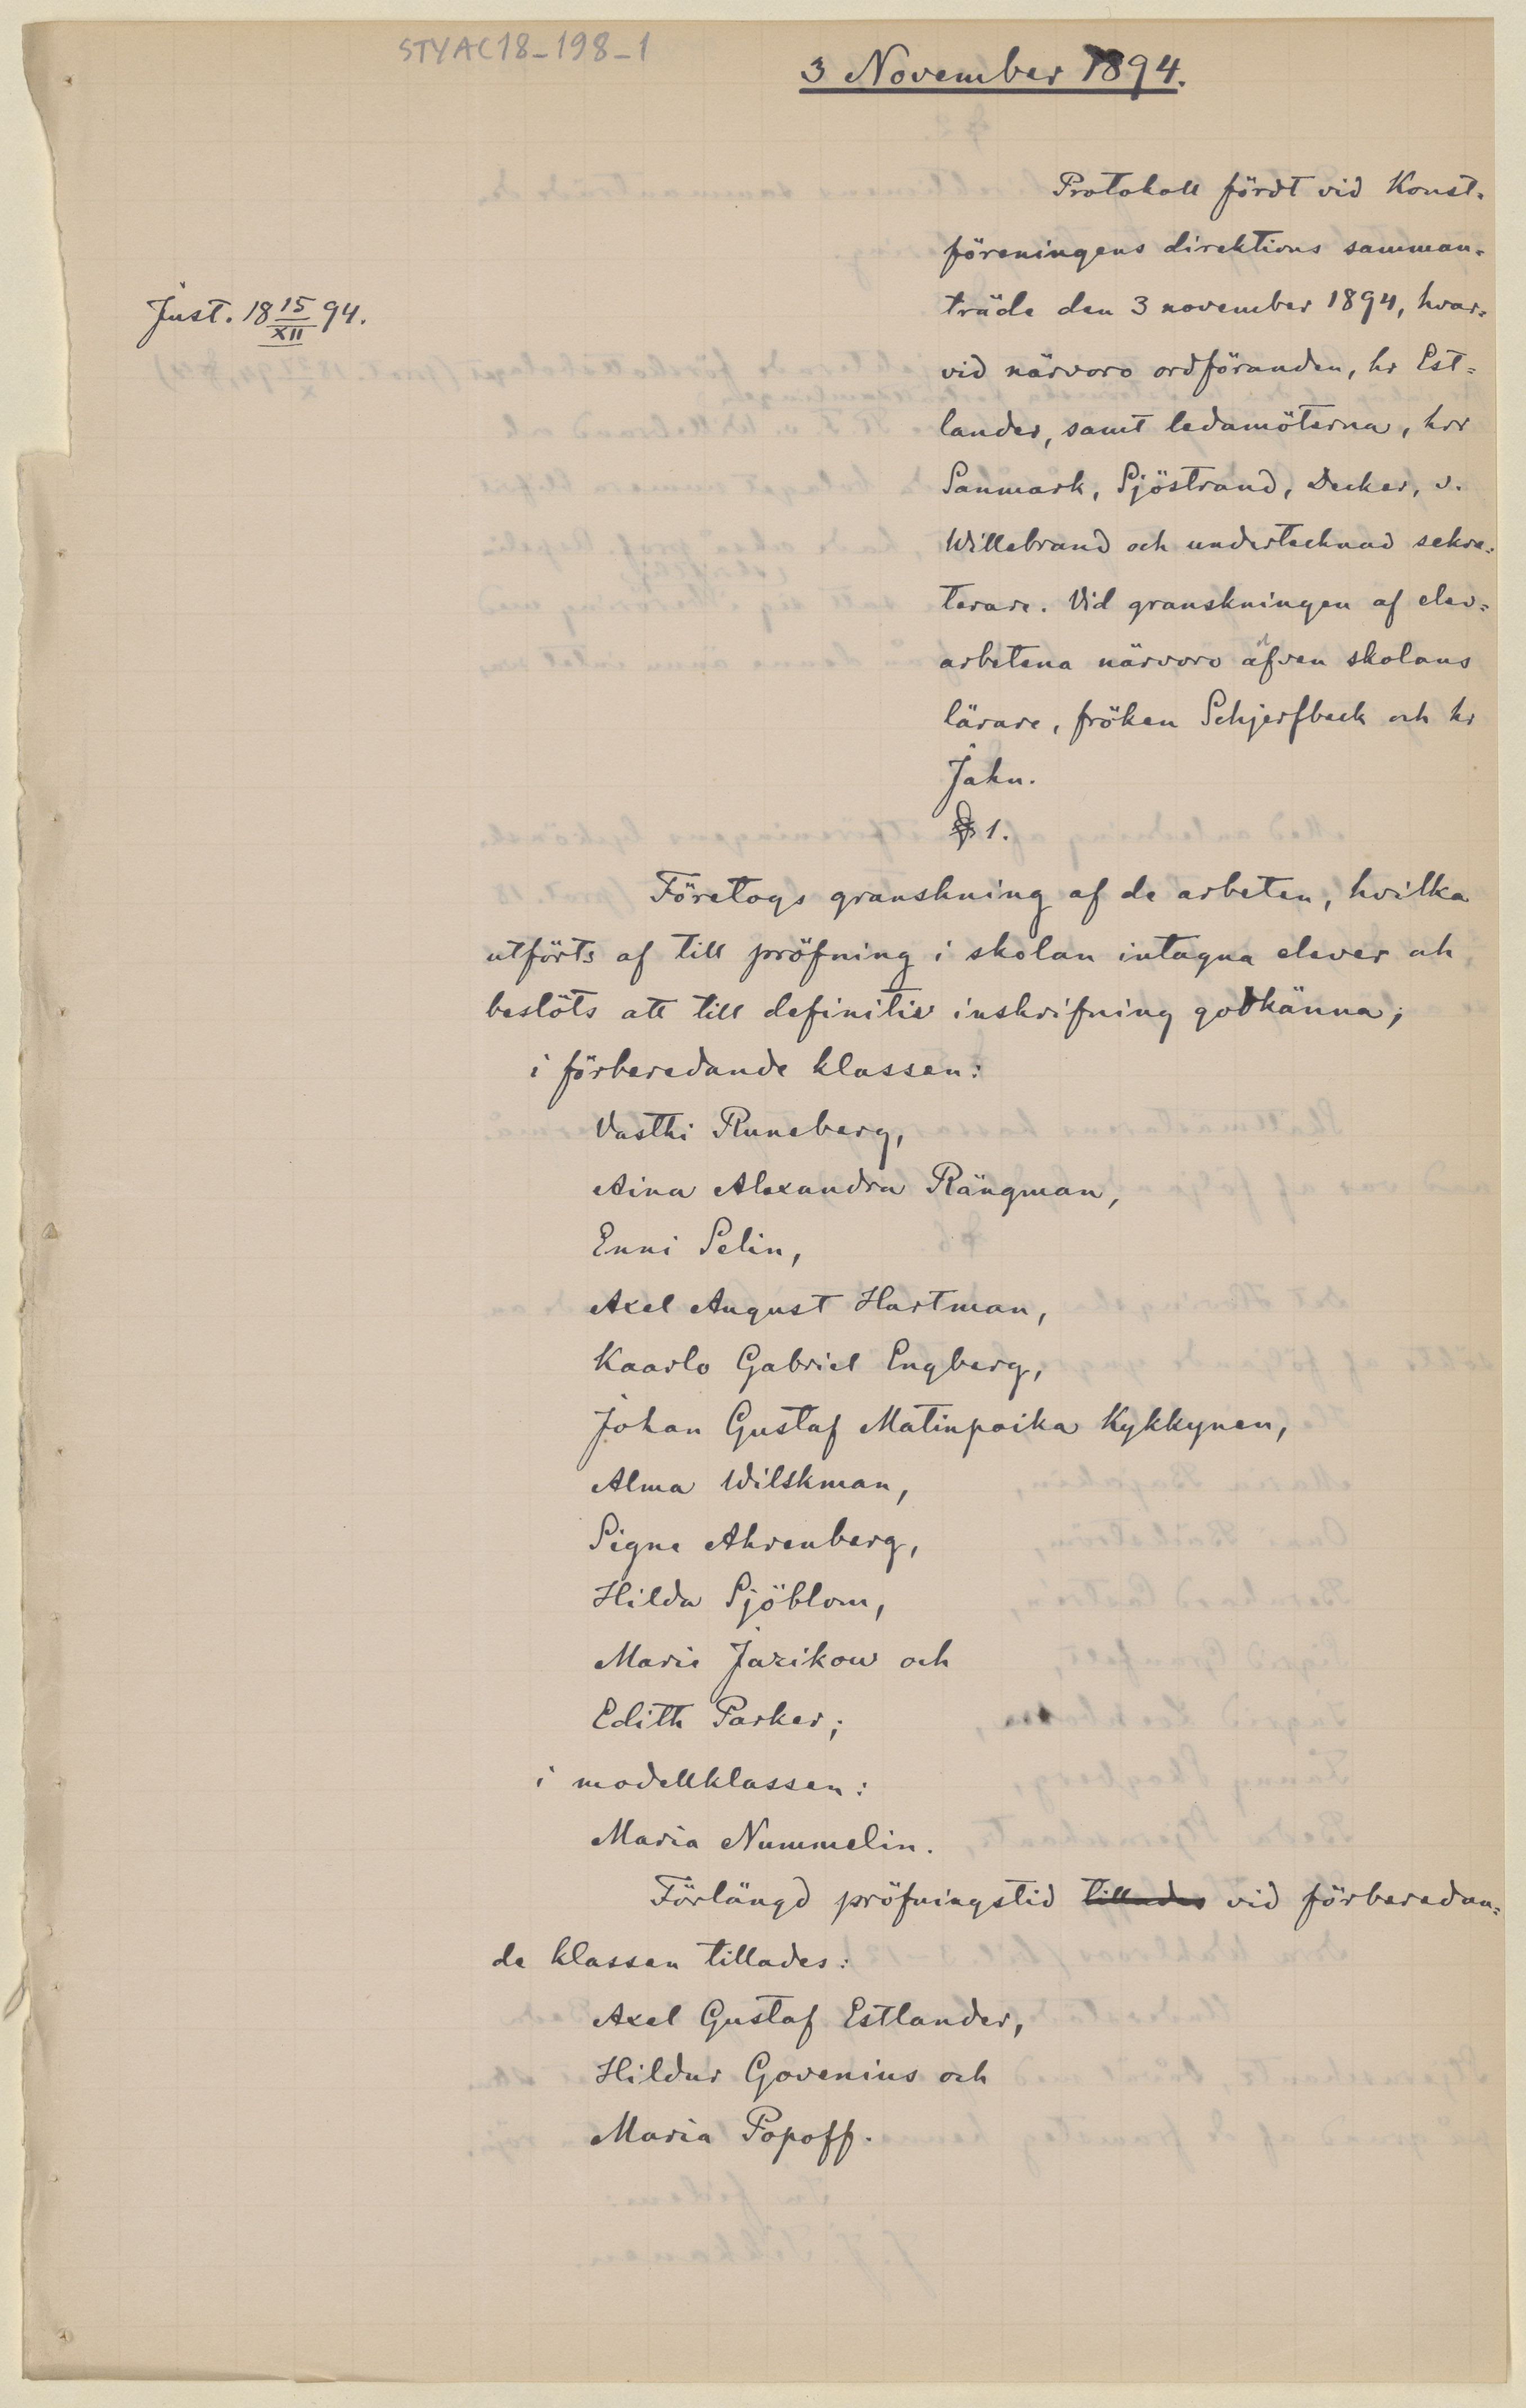 STYAC18-198-1
3 November 1894.
Protokoll fördt vid Konst-
föreningens direktions samman-
träde den 3 november 1894, hvar-
Just. 18 15/XII 94.
vid närvoro ordföranden, hr Est-
lander, samt ledamöterna, hrr
Sanmark, Sjöstrand, Decker, v.
Willebrand och undertecknad sekre-
terare. Vid granskningen af elev-
arbetena närvoro äfven skolans
lärare, fröken Schjerfbeck och hr
Jahn.
§ 1.
Företogs granskning af de arbeten, hvilka
utförts af till pröfning i skolan intagna elever och
beslöts att till definitiv inskrifning godkänna;
i förberedande klassen:
Vasthi Runeberg,
Aina Alexandra Rängman,
Enni Selin,
Axel August Hartman,
Kaarlo Gabriel Engberg,
Johan Gustaf Matinpoika Kykkynen,
Alma Wilskman,
Signe Ahrenberg,
Hilda Sjöblom,
Marie Jazikow och
Edith Parker;
i modellklassen:
Maria Nummelin.
Förlängd pröfningstid tillades vid förberedan-
de klassen tillades:
Axel Gustaf Estlander,
Hildur Govenius och
Maria Popoff.